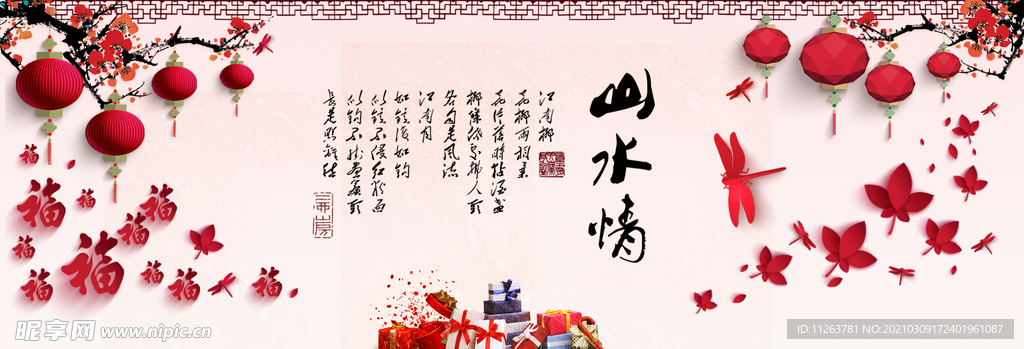 山水情
江南柳
花柳两相柔
花片落时黏酒盏
柳条低处拂人头
各自是风流
江南月
如镜复如钩
似镜不侵红粉面
似钩不挂画帘头
长是照离愁
福
福
福
福
福
福
福
福
福
福
昵享网 www.nipic.cn
ID:11263781 NO:20210309172401961087